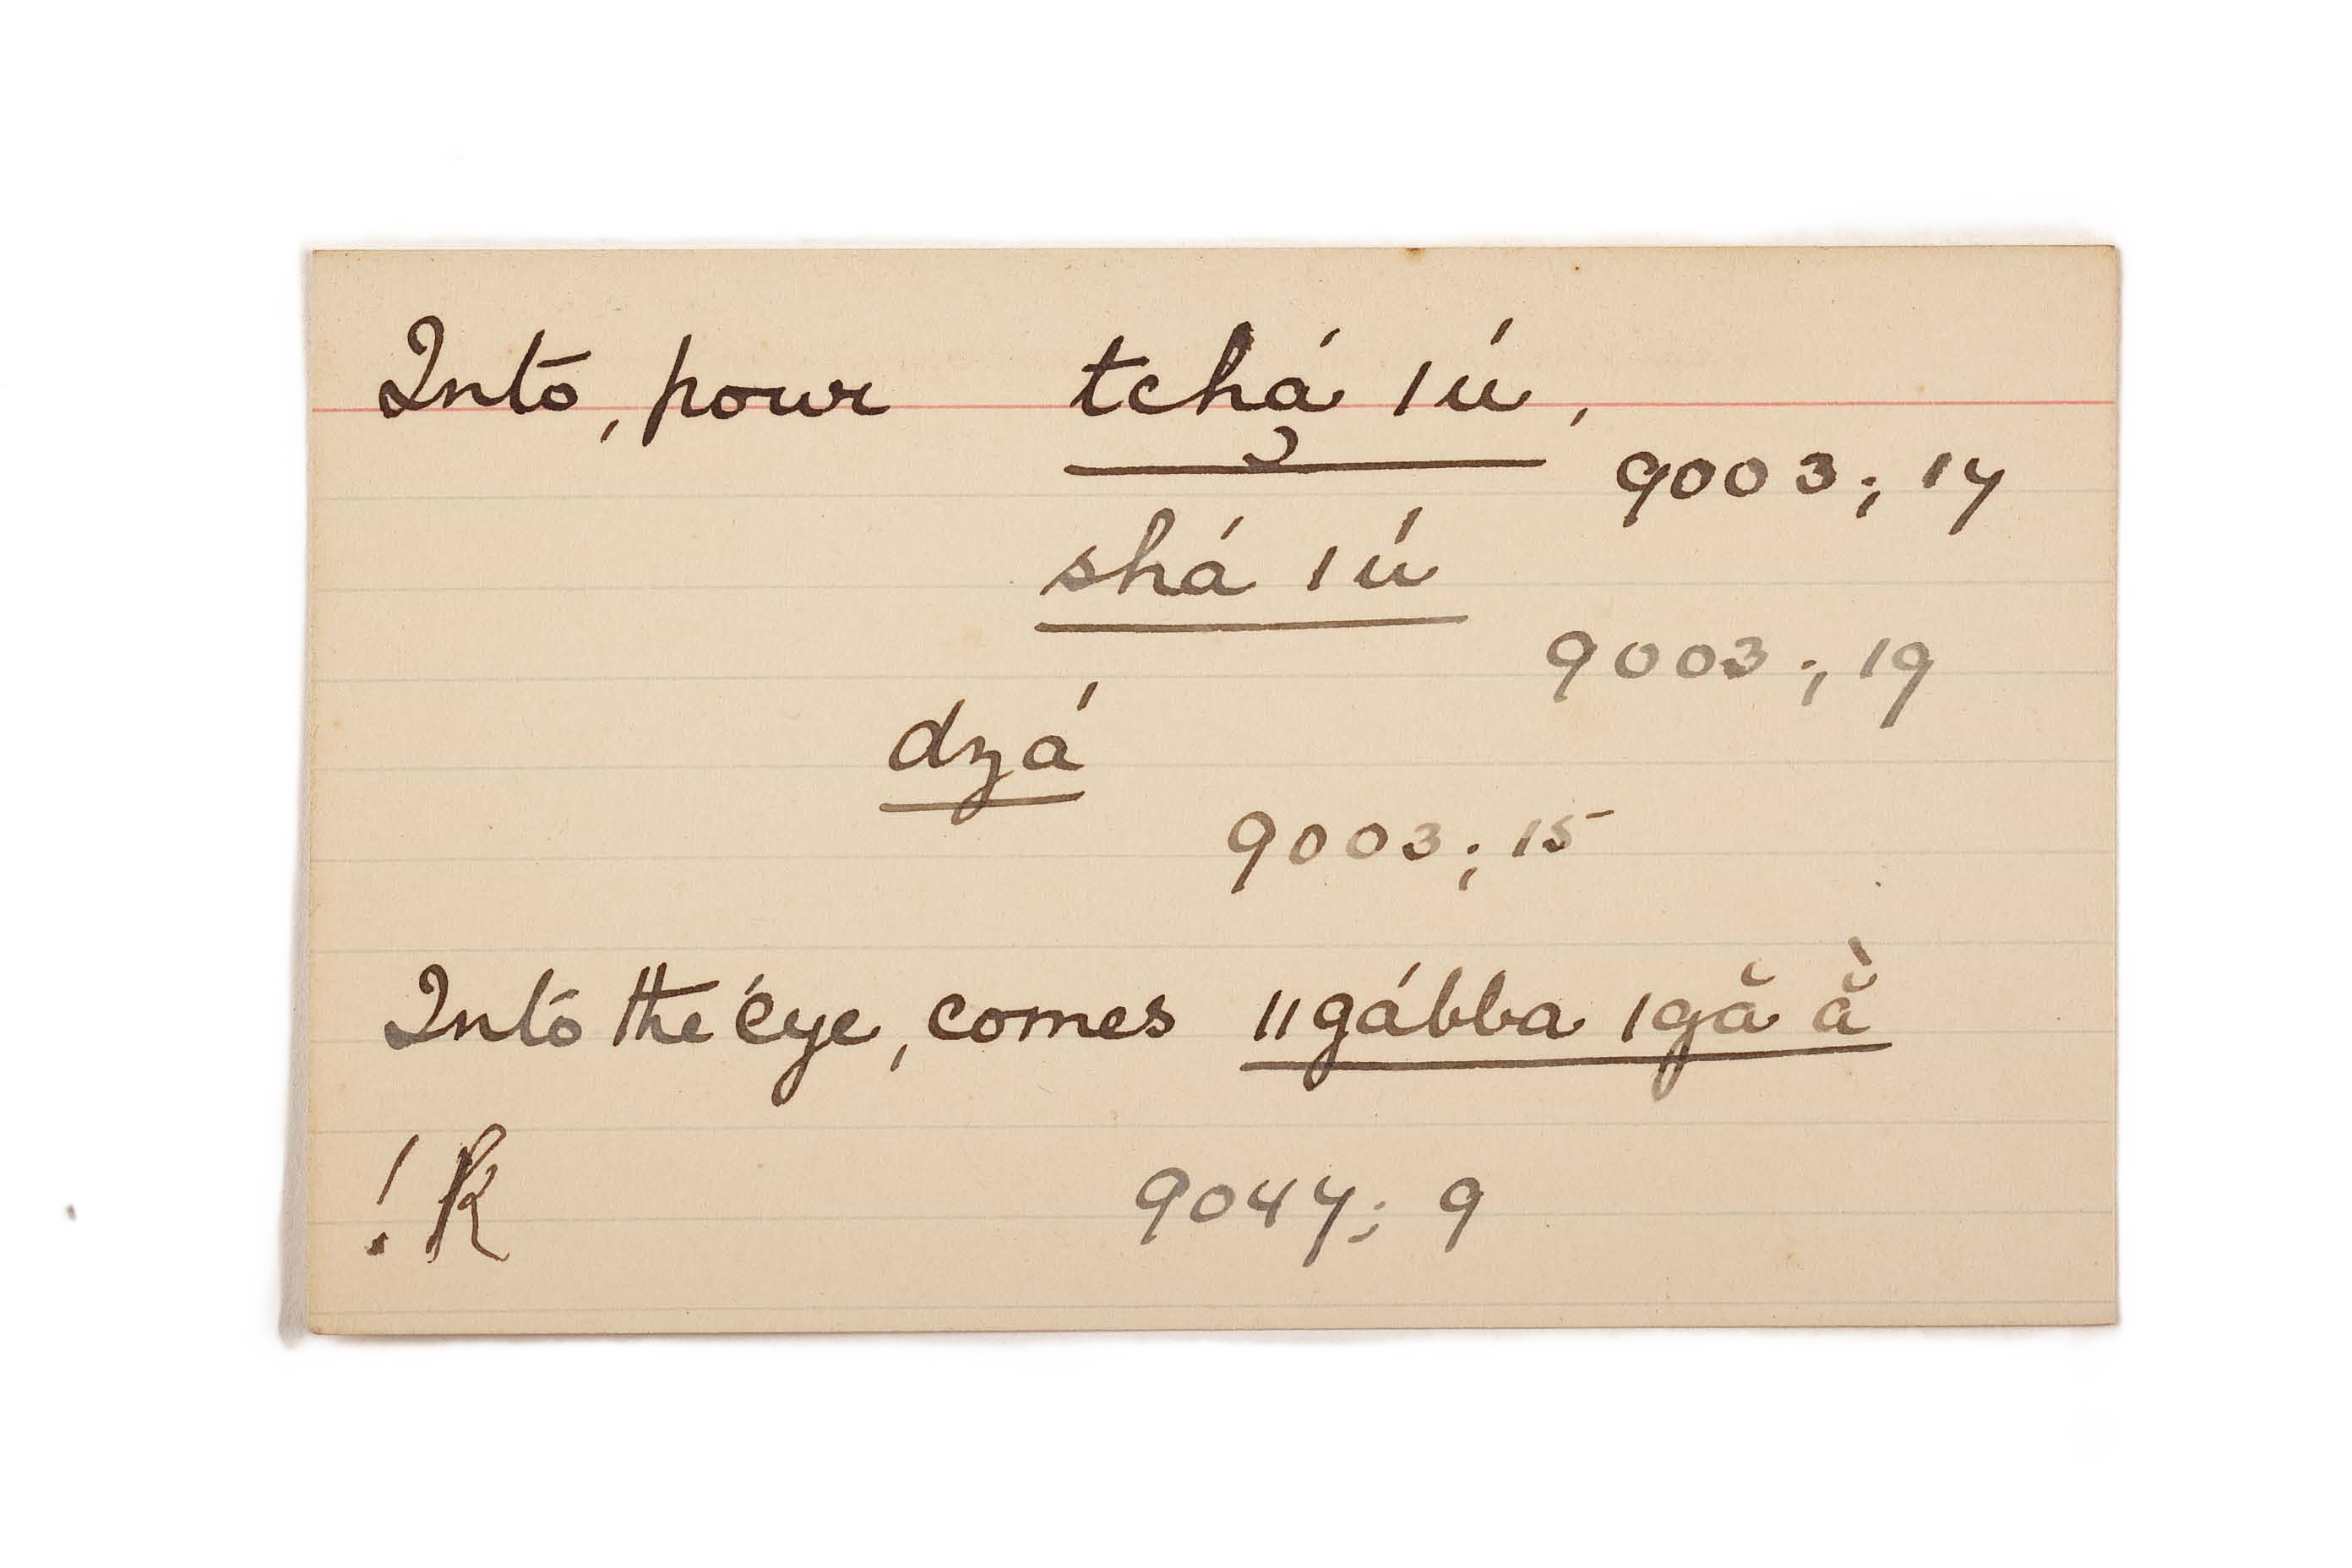 Into, pour tchá̹ |ú,
9003; 17
shá |ú
9003; 19
dzá
9003; 15
Into the eye, comes ||gábba |gă ằ
!K 9047; 9